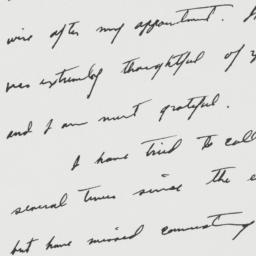 wire after my appointment.
was extremely thoughtful of
and I am most grateful.
I have tried to call
several times since the
but have missed connecting